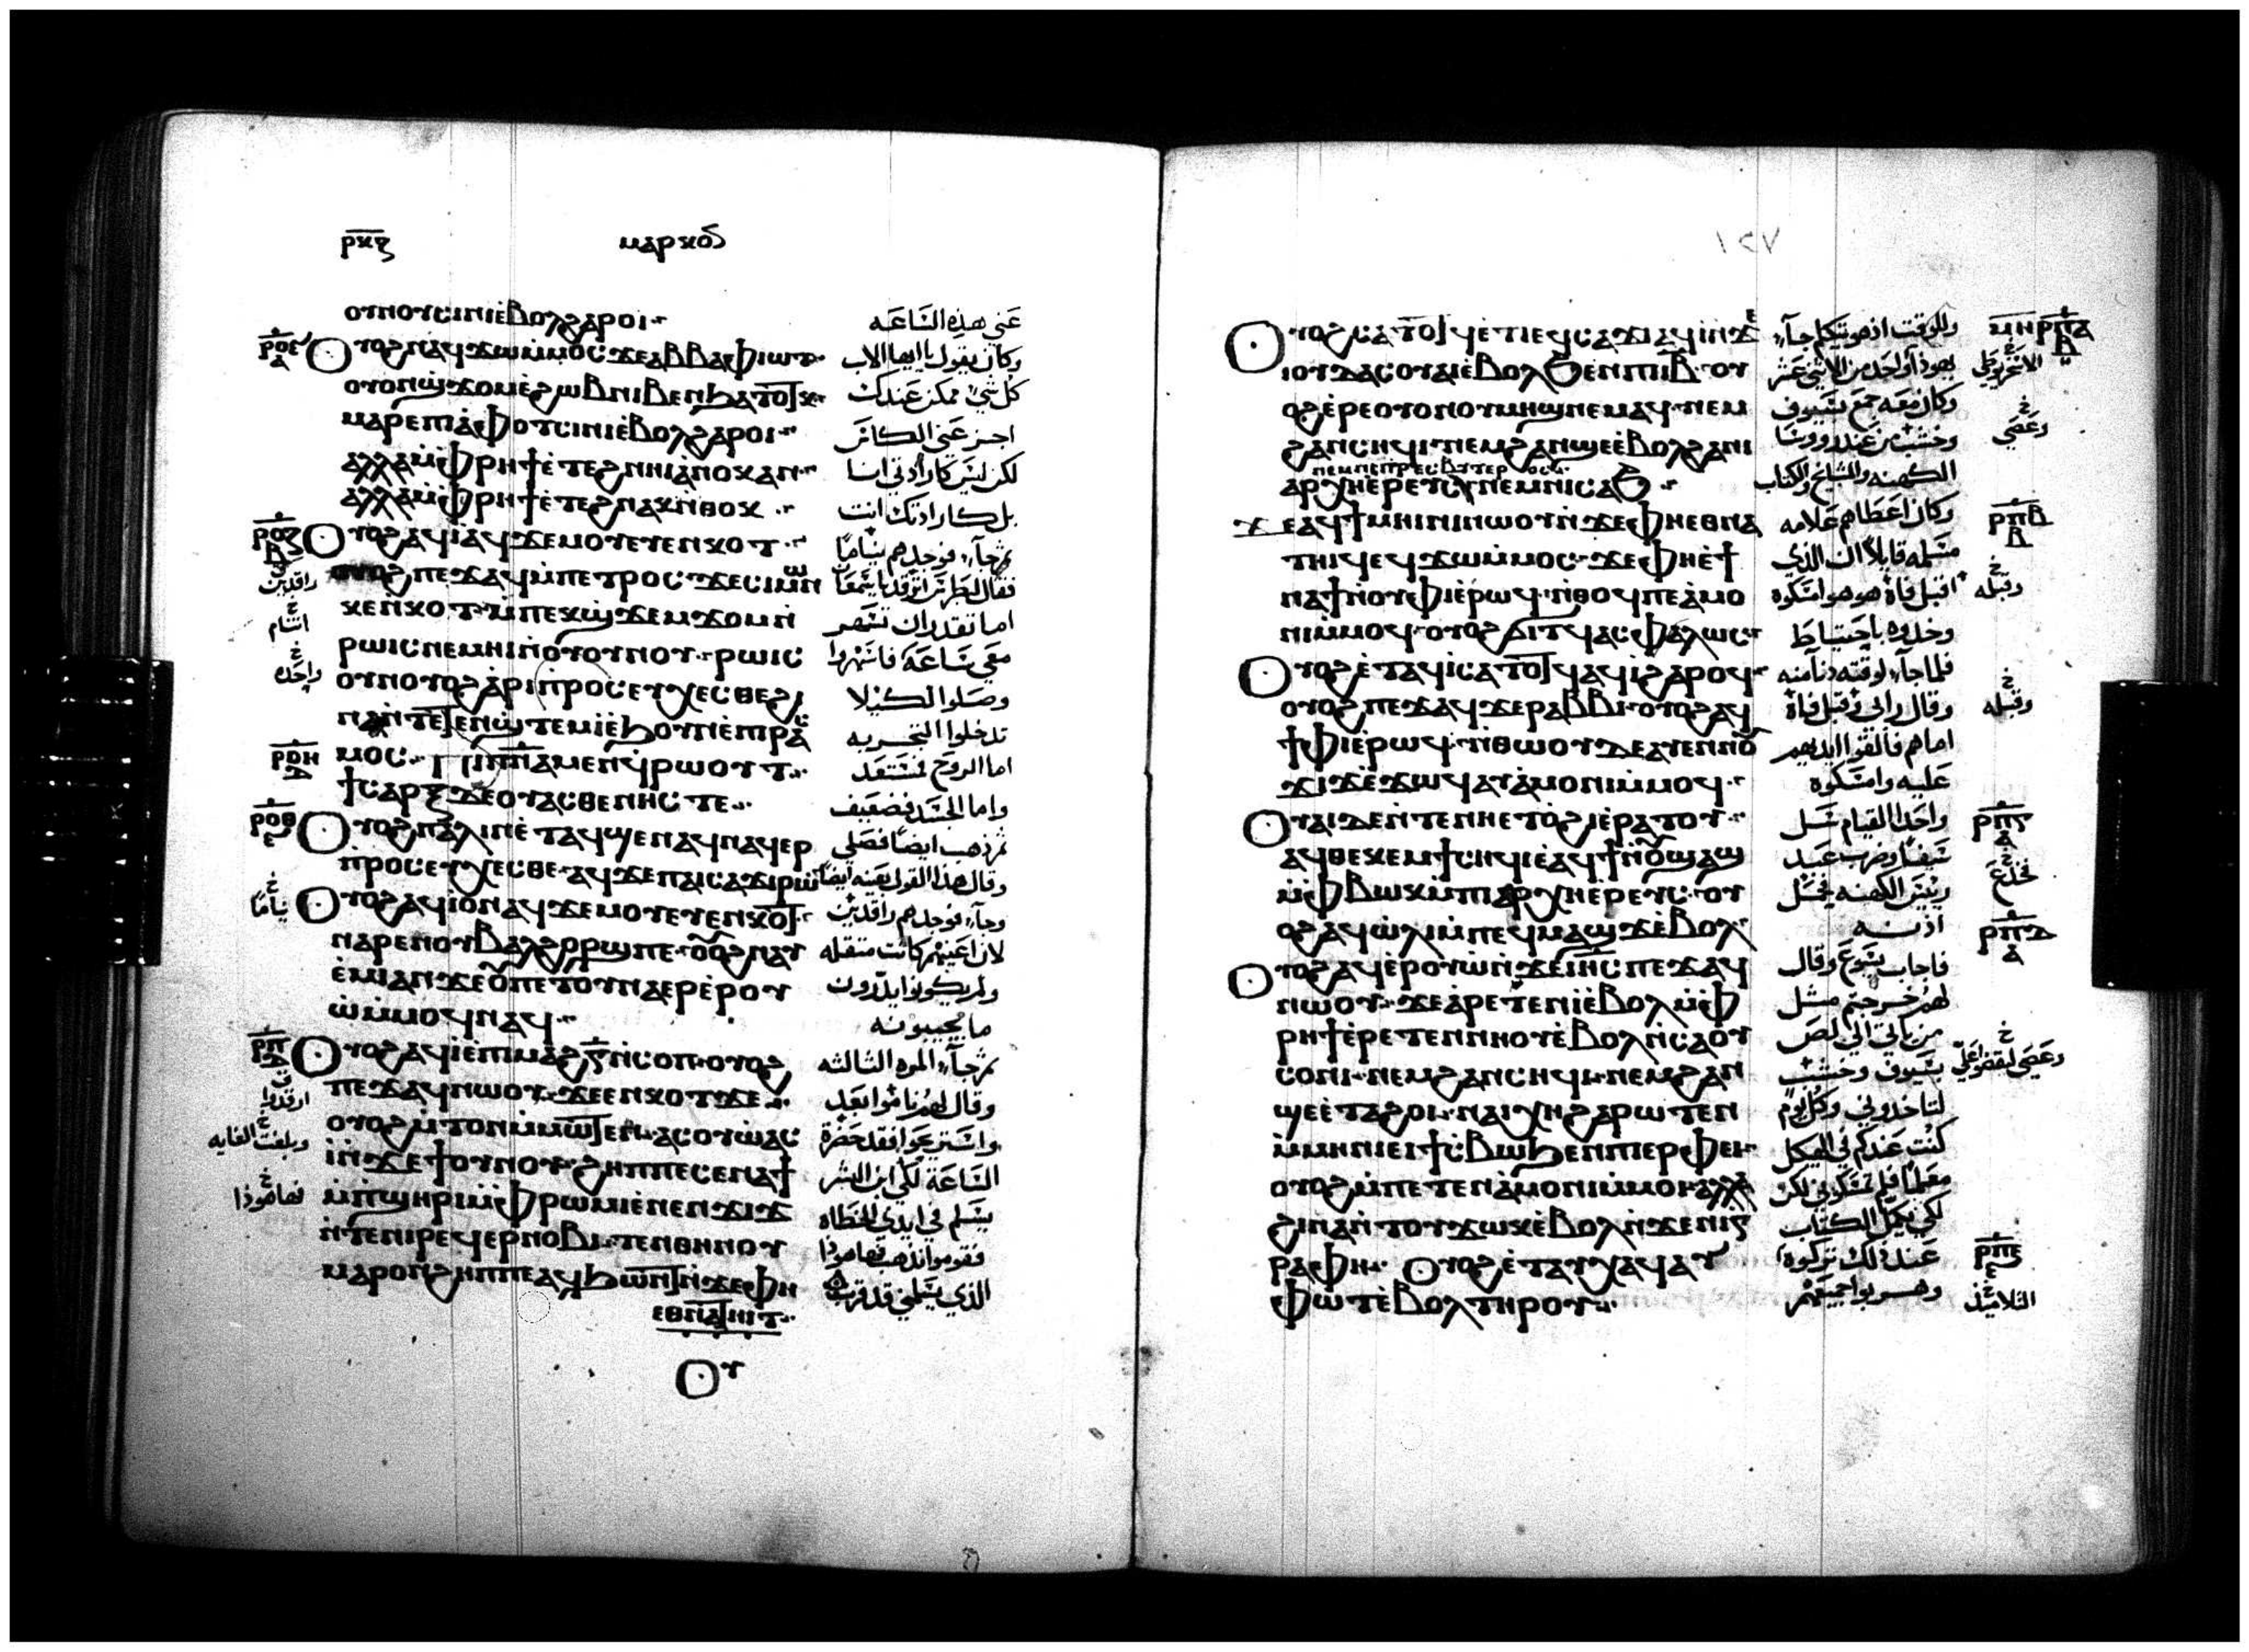 ⲣⲕⲍ
ⲙⲁⲣⲕⲟⲥ
ⲟⲩⲛⲟⲩⲥⲓⲛⲓⲉ̀ⲃⲟⲗϩⲁⲣⲟⲓ
ⲣⲟⲉ ⲟⲩⲟϩⲛⲁϥϫⲱⲙ̀ⲙⲟⲥϫⲉⲁⲃⲃⲁⲫⲓⲱⲧ
ⲟⲩⲟⲛϣ̀ϫⲟⲙⲉ̀ϩⲱⲃⲛⲓⲃⲉⲛϧⲁⲧⲟⲧⲕ
ⲙⲁⲣⲉⲡⲓⲁ̀ⲫⲟⲧⲥⲓⲛⲓⲉ̀ⲃⲟⲗϩⲁⲣⲟⲓ
ⲁⲗⲗⲁⲙ̀ⲫⲣⲏϯⲉ̀ⲧⲉϩⲛⲏⲓⲁ̀ⲛⲟⲕⲁⲛ
ⲁⲗⲗⲁⲙ̀ⲫⲣⲏϯⲉ̀ⲧⲉϩⲛⲁⲕⲛ̀ⲑⲟⲕ
ⲣⲟⲍ ⲟⲩⲟϩⲁϥⲓ̀ⲁϥϫⲉⲙⲟⲩⲉⲩⲉⲛⲕⲟⲧ
ⲟⲩⲟϩⲡⲉϫⲁϥⲙ̀ⲡⲉⲧⲣⲟⲥϫⲉⲥⲓⲙⲱⲛ
ⲕⲉⲛⲕⲟⲧⲙ̀ⲡⲉⲕϣ̀ϫⲉⲙϫⲟⲙⲛ̀
ⲣⲱⲓⲥⲛⲉⲙⲏⲓⲛ̀ⲟⲩⲟⲩⲛⲟⲩⲣⲱⲓⲥ
ⲟⲩⲛⲟⲩⲟϩⲁ̀ⲣⲓⲡ̀ⲣⲟⲥⲉⲩⲭⲉⲥⲑⲉϩⲓ
ⲛⲁⲛ̀ⲧⲉⲧⲉⲛϣ̀ⲧⲉⲙⲓ̀ⲉ̀ϧⲟⲩⲛⲉ̀ⲡⲓⲣⲁⲥ
ⲣⲟⲏ ⲙⲟⲥ ⲡⲓⲡⲛⲁⲙⲉⲛϥ̀ⲣⲱⲟⲩⲧ
ϯⲥⲁⲣⲝϫⲉⲟⲩⲁⲥⲑⲉⲛⲏⲥⲧⲉ
ⲣⲟⲑ ⲟⲩⲟϩⲡⲁⲗⲓⲛⲉ̀ⲧⲁϥϣⲉⲛⲁϥⲛⲁϥⲉⲣ
ⲡ̀ⲣⲟⲥⲉⲩⲭⲉⲥⲑⲉⲁϥϫⲉⲡⲁⲓⲥⲁϫⲓⲣⲱ
ⲟⲩⲟϩⲁϥⲓ̀ⲟⲛⲁϥϫⲉⲙⲟⲩⲉⲩⲉⲛⲕⲟⲧ
ⲛⲁⲣⲉⲛⲟⲩⲃⲁⲗϩⲟⲣϣⲡⲉⲟⲩⲟϩⲛⲁⲩ
ⲉ̀ⲙⲓⲁⲛϫⲉⲟⲩⲡⲉⲧⲟⲩⲛⲁⲉⲣⲉ̀ⲣⲟⲩ
ⲱ̀ⲙ̀ⲙⲟϥⲛⲁϥ
ⲣⲡ ⲟⲩⲟϩⲁϥⲓ̀ⲉ̀ⲡⲙⲁϩⲅ̅ⲛ̀ⲥⲟⲡⲟⲩⲟϩ
ⲡⲉϫⲁϥⲛⲱⲟⲩϫⲉⲉⲛⲕⲟⲧϫⲉ
ⲟⲩⲟϩⲙ̀ⲧⲟⲛⲙ̀ⲙⲱⲧⲉⲛⲁⲥⲟⲩⲱⲁⲥ
ⲓ̀ⲛ̀ϫⲉϯⲟⲩⲛⲟⲩϩⲏⲡⲡⲉⲥⲉⲛⲁϯ
ⲙ̀ⲡϣⲏⲣⲓⲙ̀ⲫⲣⲱⲙⲓⲉ̀ⲛⲉⲛϫⲓϫ
ⲛ̀ⲧⲉⲛⲓⲣⲉϥⲉⲣⲛⲟⲃⲓⲧⲉⲛⲑⲏⲛⲟⲩ
ⲙⲁⲣⲟⲛϩⲏⲡⲡⲉⲁϥϧⲱⲛⲧⲛ̀ϫⲉⲫⲏ
ⲉⲑⲛⲁⲧⲏⲓⲧ
ⲟⲩ
عني هذه الساعه
وكان يقول يا ايها الاب
كل شي ممكن عندك
اجز عني الكاس
لكن ليس كارادتي انا
بل كارادتك انت
ثم جآء فوجدهم نياما
فقال لبطرس اترقد يا سمعان
اما تقدر ان تسهر
معي ساعه فاسهروا
وصلوا الكيلا
تدخلوا التجربه
اما الروح فمستعد
واما الجسد فضعيف
ثم ذهب ايضا فصلي
وقال هذا القول بعينه ايضا
وجآء فوجدهم راقدين
لان اعينهم كانت مثقله
ولم يكونوا يدرون
ما يجيبونه
ثم جآء المره الثالثه
وقال لهم ناموا بعد
واستريحوا فقد حضرة
الساعة لكي ابن البشر
يسلم في ايدي الخطاه
فقوموا نذهب فهاهوذا
الذي يسلمني قد قرب
راقدين
اتنام
واحده
نياما
ارقدوا
وبلغت الغايه
فهاهوذا
١٢٧
ⲟⲩⲟϩⲥⲁⲧⲟⲧϥⲉ̀ⲧⲓⲉϥⲥⲁϫⲓⲁϥⲓ̀ⲛ̀ϫⲉ
ⲓⲟⲩⲇⲁⲥⲟⲩⲁⲓⲉ̀ⲃⲟⲗϧⲉⲛⲡⲓⲓⲃⲟⲩ
ⲟϩⲉ̀ⲣⲉⲟⲩⲟⲛⲟⲩⲙⲏϣⲛⲉⲙⲁϥⲛⲉⲙ
ϩⲁⲛⲥⲏϥⲓⲛⲉⲙϩⲁⲛϣⲉⲉ̀ⲃⲟⲗϩⲁⲛⲓ
ⲛⲉⲙⲛⲓⲡⲣⲉⲥⲃⲩⲧⲉⲣⲟⲥ
ⲁⲣⲭⲏⲉ̀ⲣⲉⲩⲥⲛⲉⲙⲛⲓⲥⲁϧ
ϫⲉⲁϥϯⲙⲏⲓⲛⲓⲛⲱⲟⲩⲛ̀ϫⲉⲫⲏⲉⲑⲛⲁ
ⲧⲏⲓϥⲉϥϫⲱⲙ̀ⲙⲟⲥϫⲉⲫⲏⲉ̀ϯ
ⲛⲁϯⲛ̀ⲟⲩⲫⲓⲉ̀ⲣⲱϥⲛ̀ⲑⲟϥⲡⲉⲁ̀ⲙⲟ
ⲛⲓⲙ̀ⲙⲟϥⲟⲩⲟϩϭⲓⲧϥⲁⲥⲫⲁⲗⲱⲥ
ⲟⲩⲟϩⲉ̀ⲧⲁϥⲓ̀ⲥⲁⲧⲟⲧϥⲁϥⲓ̀ϩⲁⲣⲟϥ
ⲟⲩⲟϩⲡⲉϫⲁϥϫⲉⲣⲁⲃⲃⲓⲟⲩⲟϩⲁϥ
ϯⲫⲓⲉ̀ⲣⲱϥⲛ̀ⲑⲱⲟⲩⲇⲉⲁⲩⲉⲛⲛⲟⲩ
ϫⲓϫⲉ̀ϫⲱϥⲁⲩⲁ̀ⲙⲟⲛⲓⲙ̀ⲙⲟϥ
ⲟⲩⲁⲓⲇⲉⲛ̀ⲧⲉⲛⲏⲉⲧⲟ̀ϩⲓⲉ̀ⲣⲁⲧⲟⲩ
ⲁϥⲑⲉⲕⲉⲙϯⲥⲏϥⲓⲉ̀ⲁϥϯⲛ̀ⲟⲩϣⲁϣ
ⲙ̀ⲫⲃⲱⲕⲙ̀ⲡⲓⲁⲣⲭⲏⲉ̀ⲣⲉⲩⲥⲟⲩ
ⲟϩⲁϥⲱ̀ⲗⲓⲙ̀ⲡⲉϥⲙⲁϣϫⲉ̀ⲃⲟⲗ
ⲟⲩⲟϩⲁϥⲉ̀ⲣⲟⲩⲱ̀ⲛ̀ϫⲉⲓⲏⲥⲡⲉϫⲁϥ
ⲛⲱⲟⲩϫⲉⲁ̀ⲣⲉⲧⲉⲛⲓ̀ⲉ̀ⲃⲟⲗⲙ̀ⲫ
ⲣⲏϯⲉ̀ⲣⲉⲧⲉⲛⲛⲏⲟⲩⲉ̀ⲃⲟⲗⲛ̀ⲥⲁⲟⲩ
ⲥⲟⲛⲓⲛⲉⲙϩⲁⲛⲥⲏϥⲓⲛⲉⲙϩⲁⲛ
ϣⲉⲉ̀ⲧⲁϩⲟⲓⲛⲁⲓⲭⲏϩⲁⲣⲱⲧⲉⲛ
ⲙ̀ⲙⲏⲛⲓⲉⲓϯⲥ̀ⲃⲱϧⲉⲛⲡⲓⲉⲣⲫⲉⲓ
ⲟⲩⲟϩⲙ̀ⲡⲉⲧⲉⲛⲁ̀ⲙⲟⲛⲓⲙ̀ⲙⲟⲓⲁⲗⲗⲁ
ϩⲓⲛⲁⲛ̀ⲧⲟⲩϫⲱⲕⲉ̀ⲃⲟⲗⲛ̀ϫⲉⲛⲓⲅ
ⲣⲁⲫⲏ ⲟⲩⲟϩⲉ̀ⲧⲁⲩⲭⲁϥⲁⲩ
ⲫⲱⲧⲉ̀ⲃⲟⲗⲧⲏⲣⲟⲩ
وللوقت اذ هو يتكلم جآء
يهوذا واحد من الاثني عشر
وكان معه جمع بسيوف
وخشب من عند رووسا
الكهنه والمشايخ والكتاب
وكان اعطاهم علامه
مسلمه قايلا ان الذي
اقبل فاه هو هو امسكوه
وخدوه باحتياط
فلما جآء لوقته دنا منه
وقال رابي وقبل فاه
اما هم فالقوا ايديهم
عليه وامسكوه
واحد القيام سل
سيفا وضرب عبد
رييس الكهنه فحمل
اذنه
فاجاب يسوع وقال
لهم خرجتم مثل
من ياتي الي لص
بسيوف وخشب
لتاخدوني وكل يوم
كنت عندكم في الهيكل
معلما فلم تمسكوني لكن
لكي يكمل الكتاب
عند ذلك تركوه
وهربوا جميعهم
ⲙⲏ ⲣⲡⲁ
الاسخريوطي
وعصي
ⲣⲡⲃ
وقبله
وقبله
ⲣⲡⲅ
ⲣⲡⲇ
ⲣⲡⲉ
التلاميذ